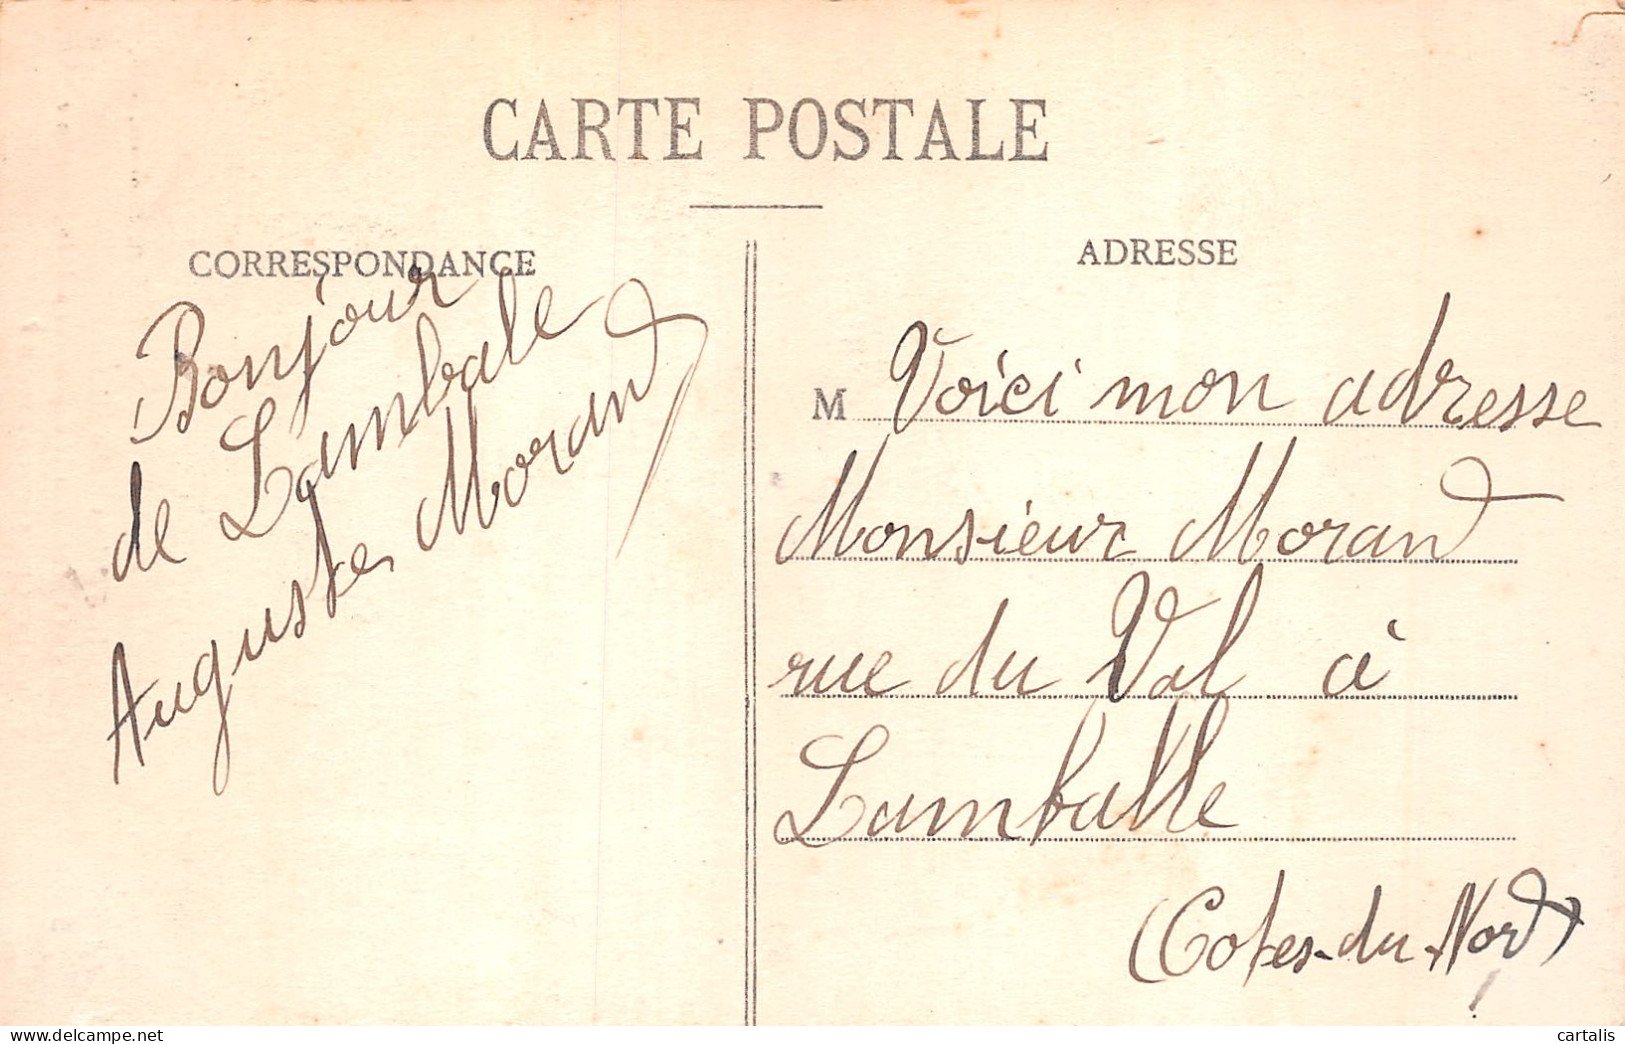 CARTE POSTALE
CORRESPONDANCE
Bonjour
de Lambale
Auguste Morand
ADRESSE
M Voici mon adresse
Monsieur Morand
rue du Val à
Lamballe
(Cotes-du-Nord)
www.delcampe.net
cartalis